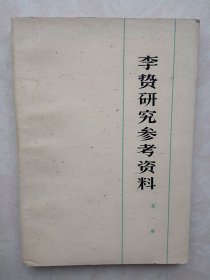 李贽研究参考资料
第一辑